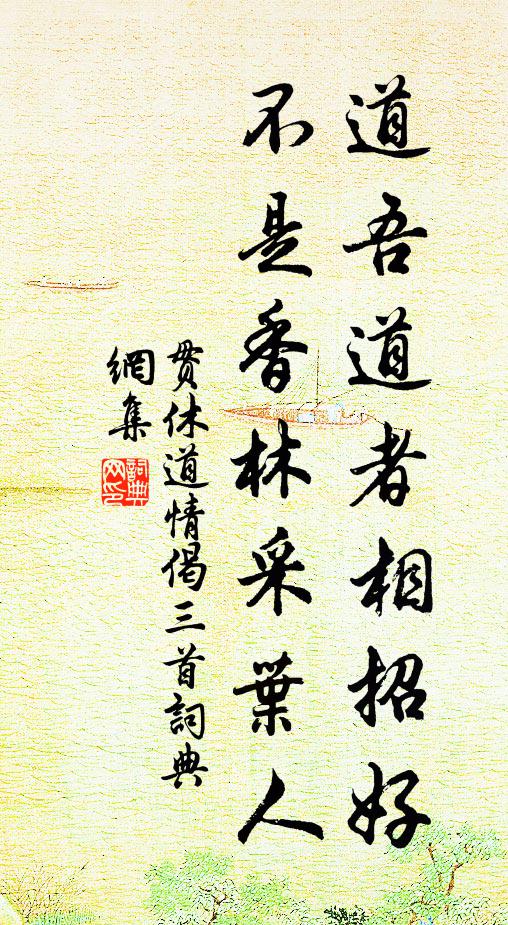 道吾道者相招好
不是香林采葉人
貫休道情偈三首詞典
網集
詞典
网印